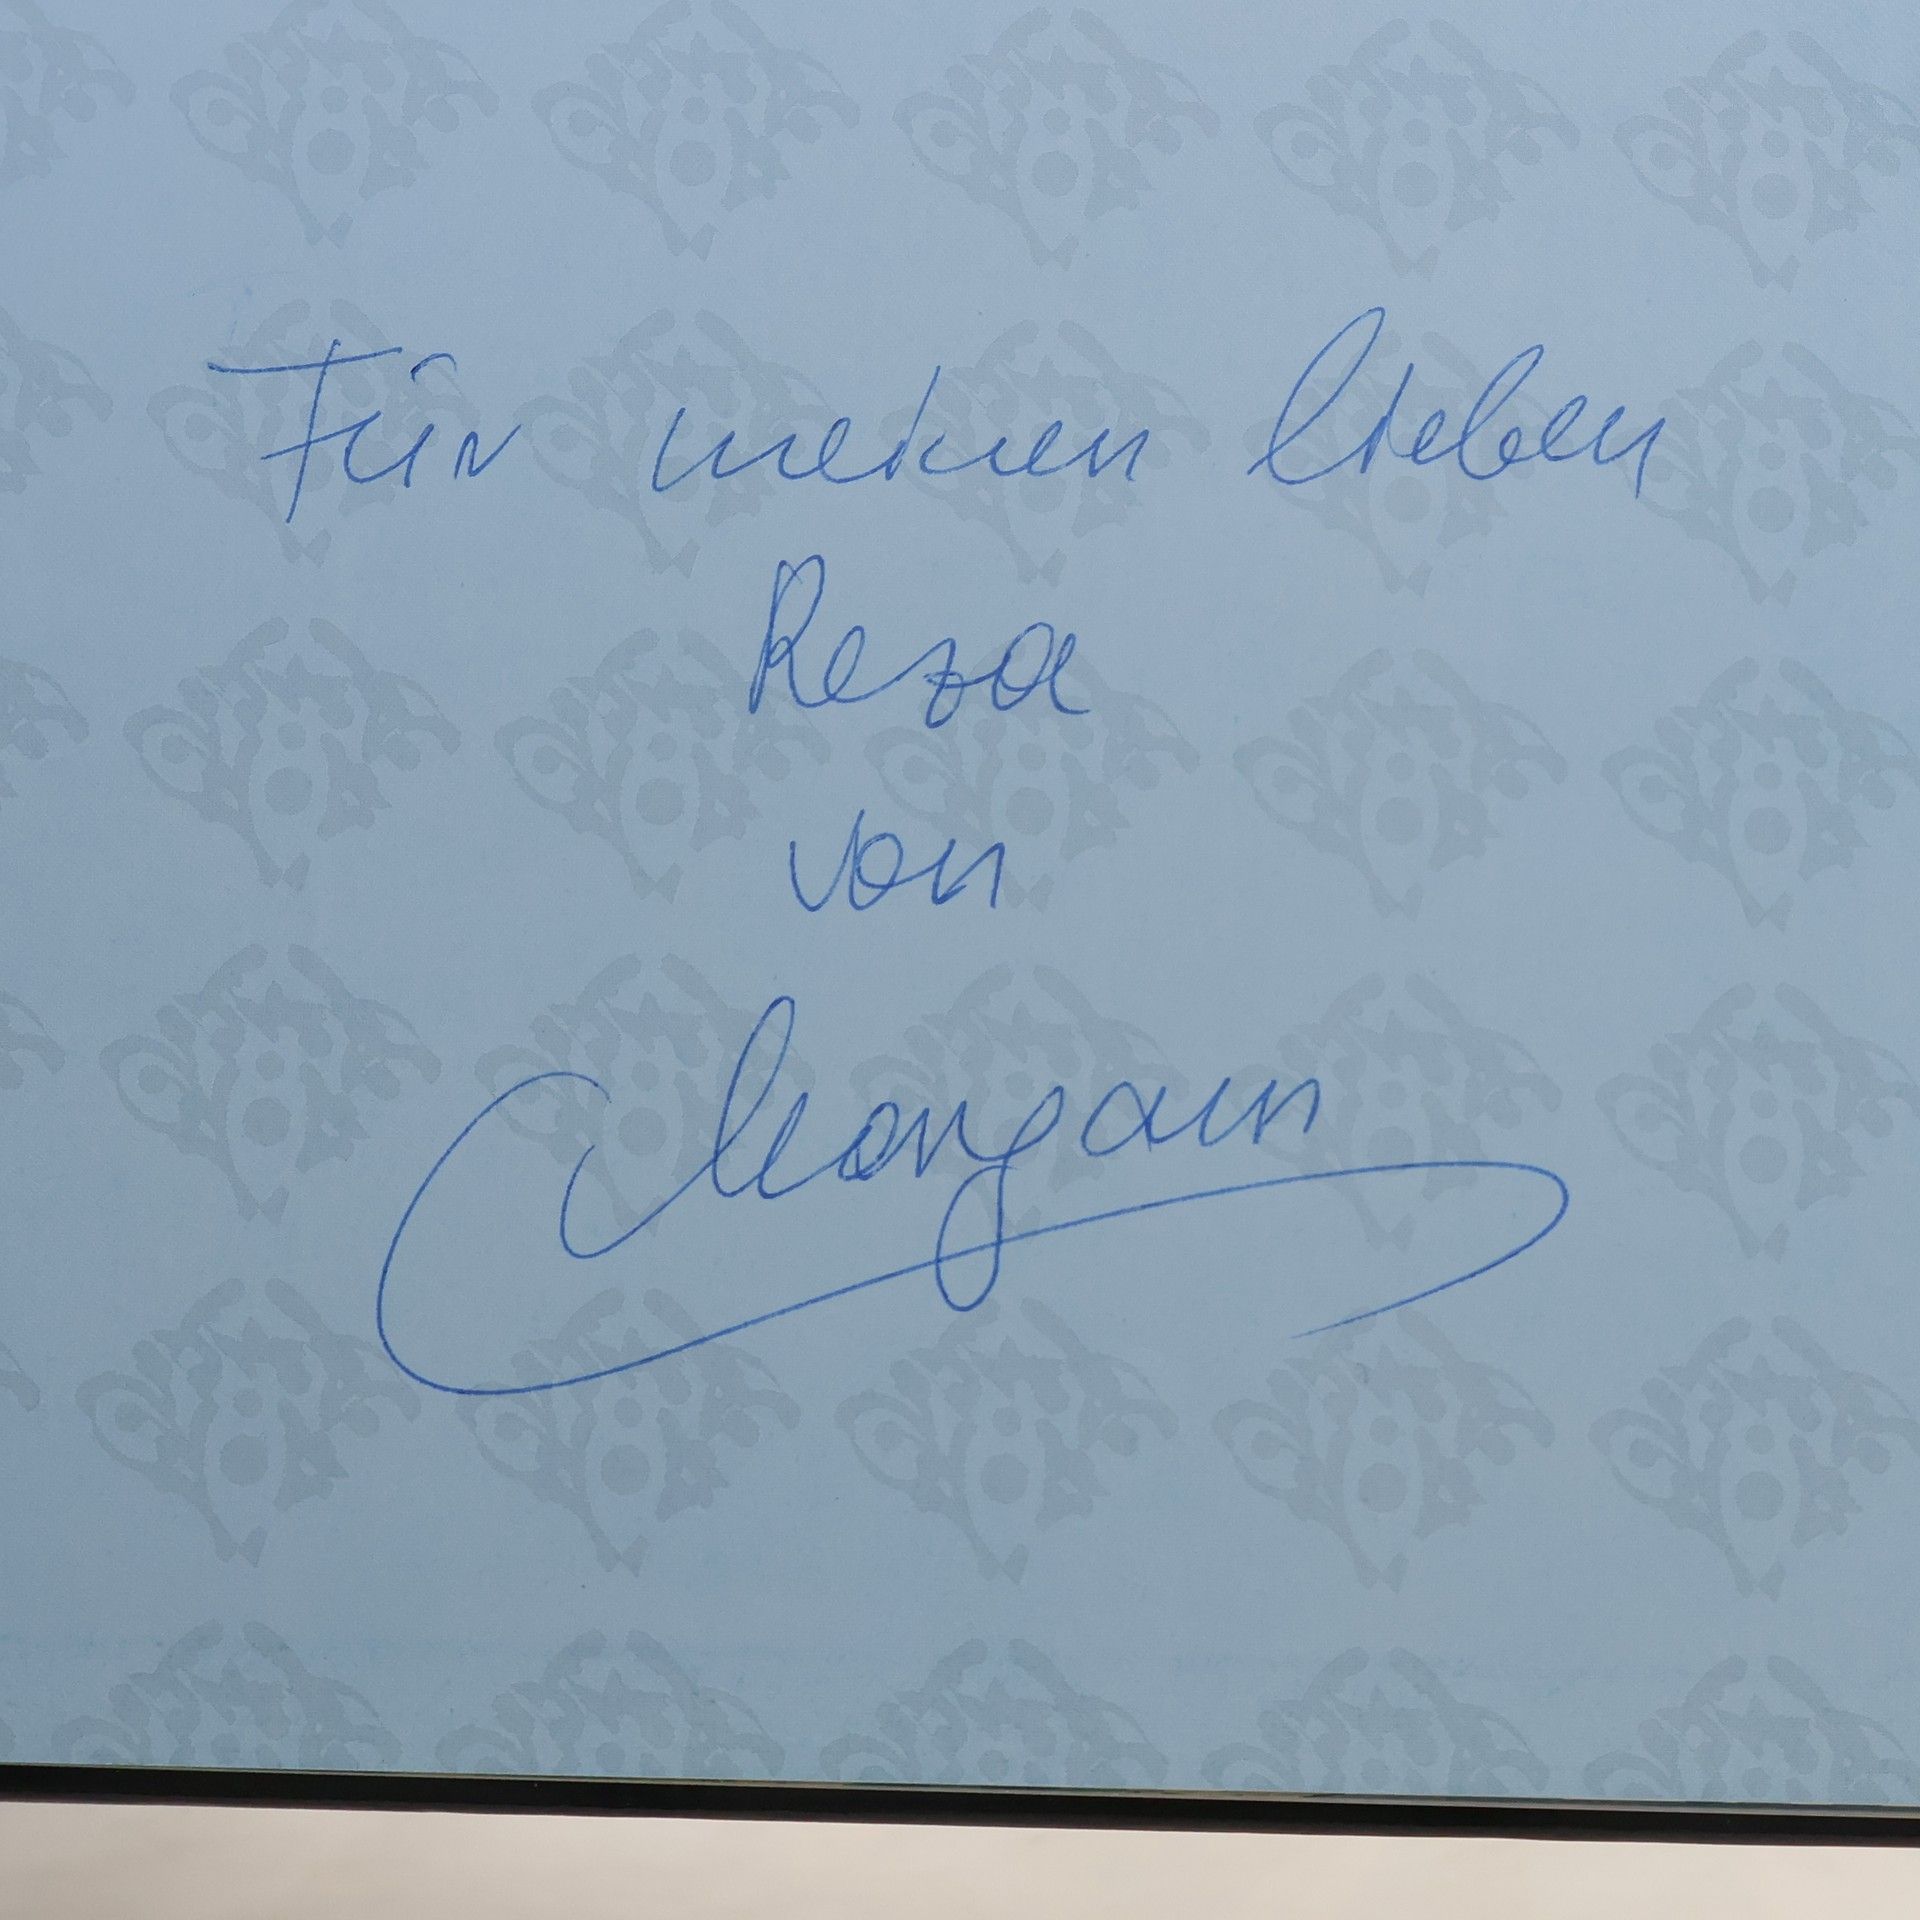 Für meinen lieben
Reza
von